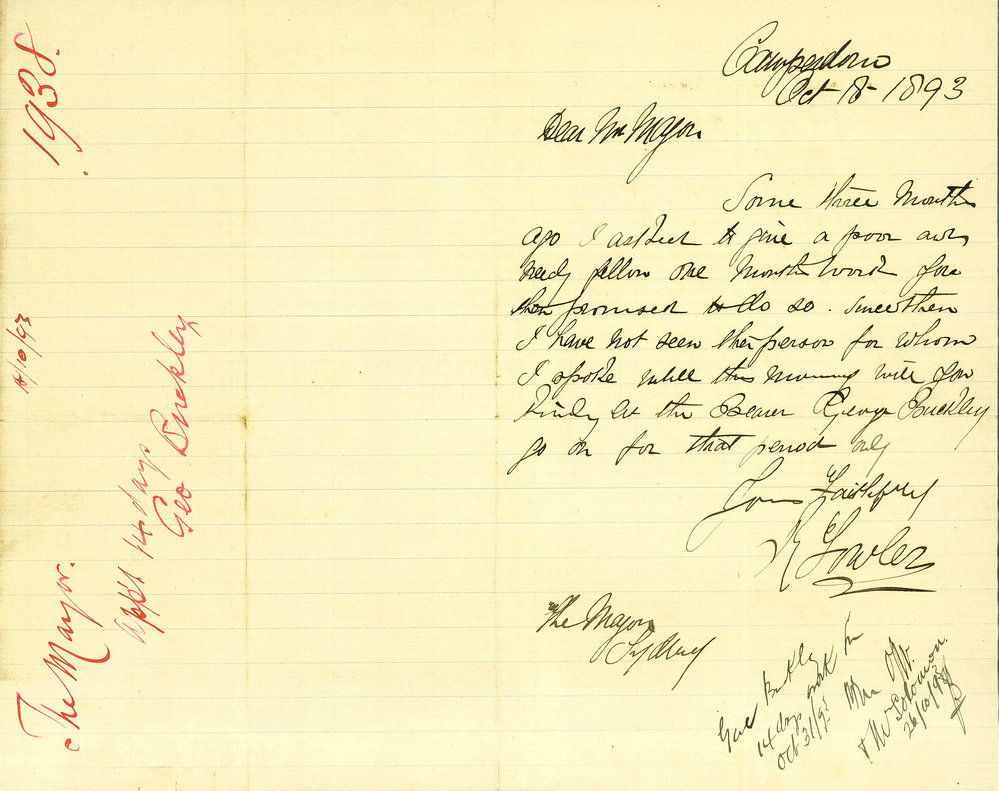 Camperdown
Oct 18 - 1893
Dear Mr Mayor
Some three Months
ago I asked to give a poor and
needy fellow one Months Work you
then promised to do so. Since then
I have not seen the person for whom
I spoke untill this morning will you
kindly let the Bearer George Buckley
go on for that period only
Yours Faithfully
Fowler
The Mayor
Sydney
Give Buckley
14 days work from
Oct 31/93
Solomon
26/10/93
1938.
18/10/93
The Mayor.
App't 14 days
Geo Buckley